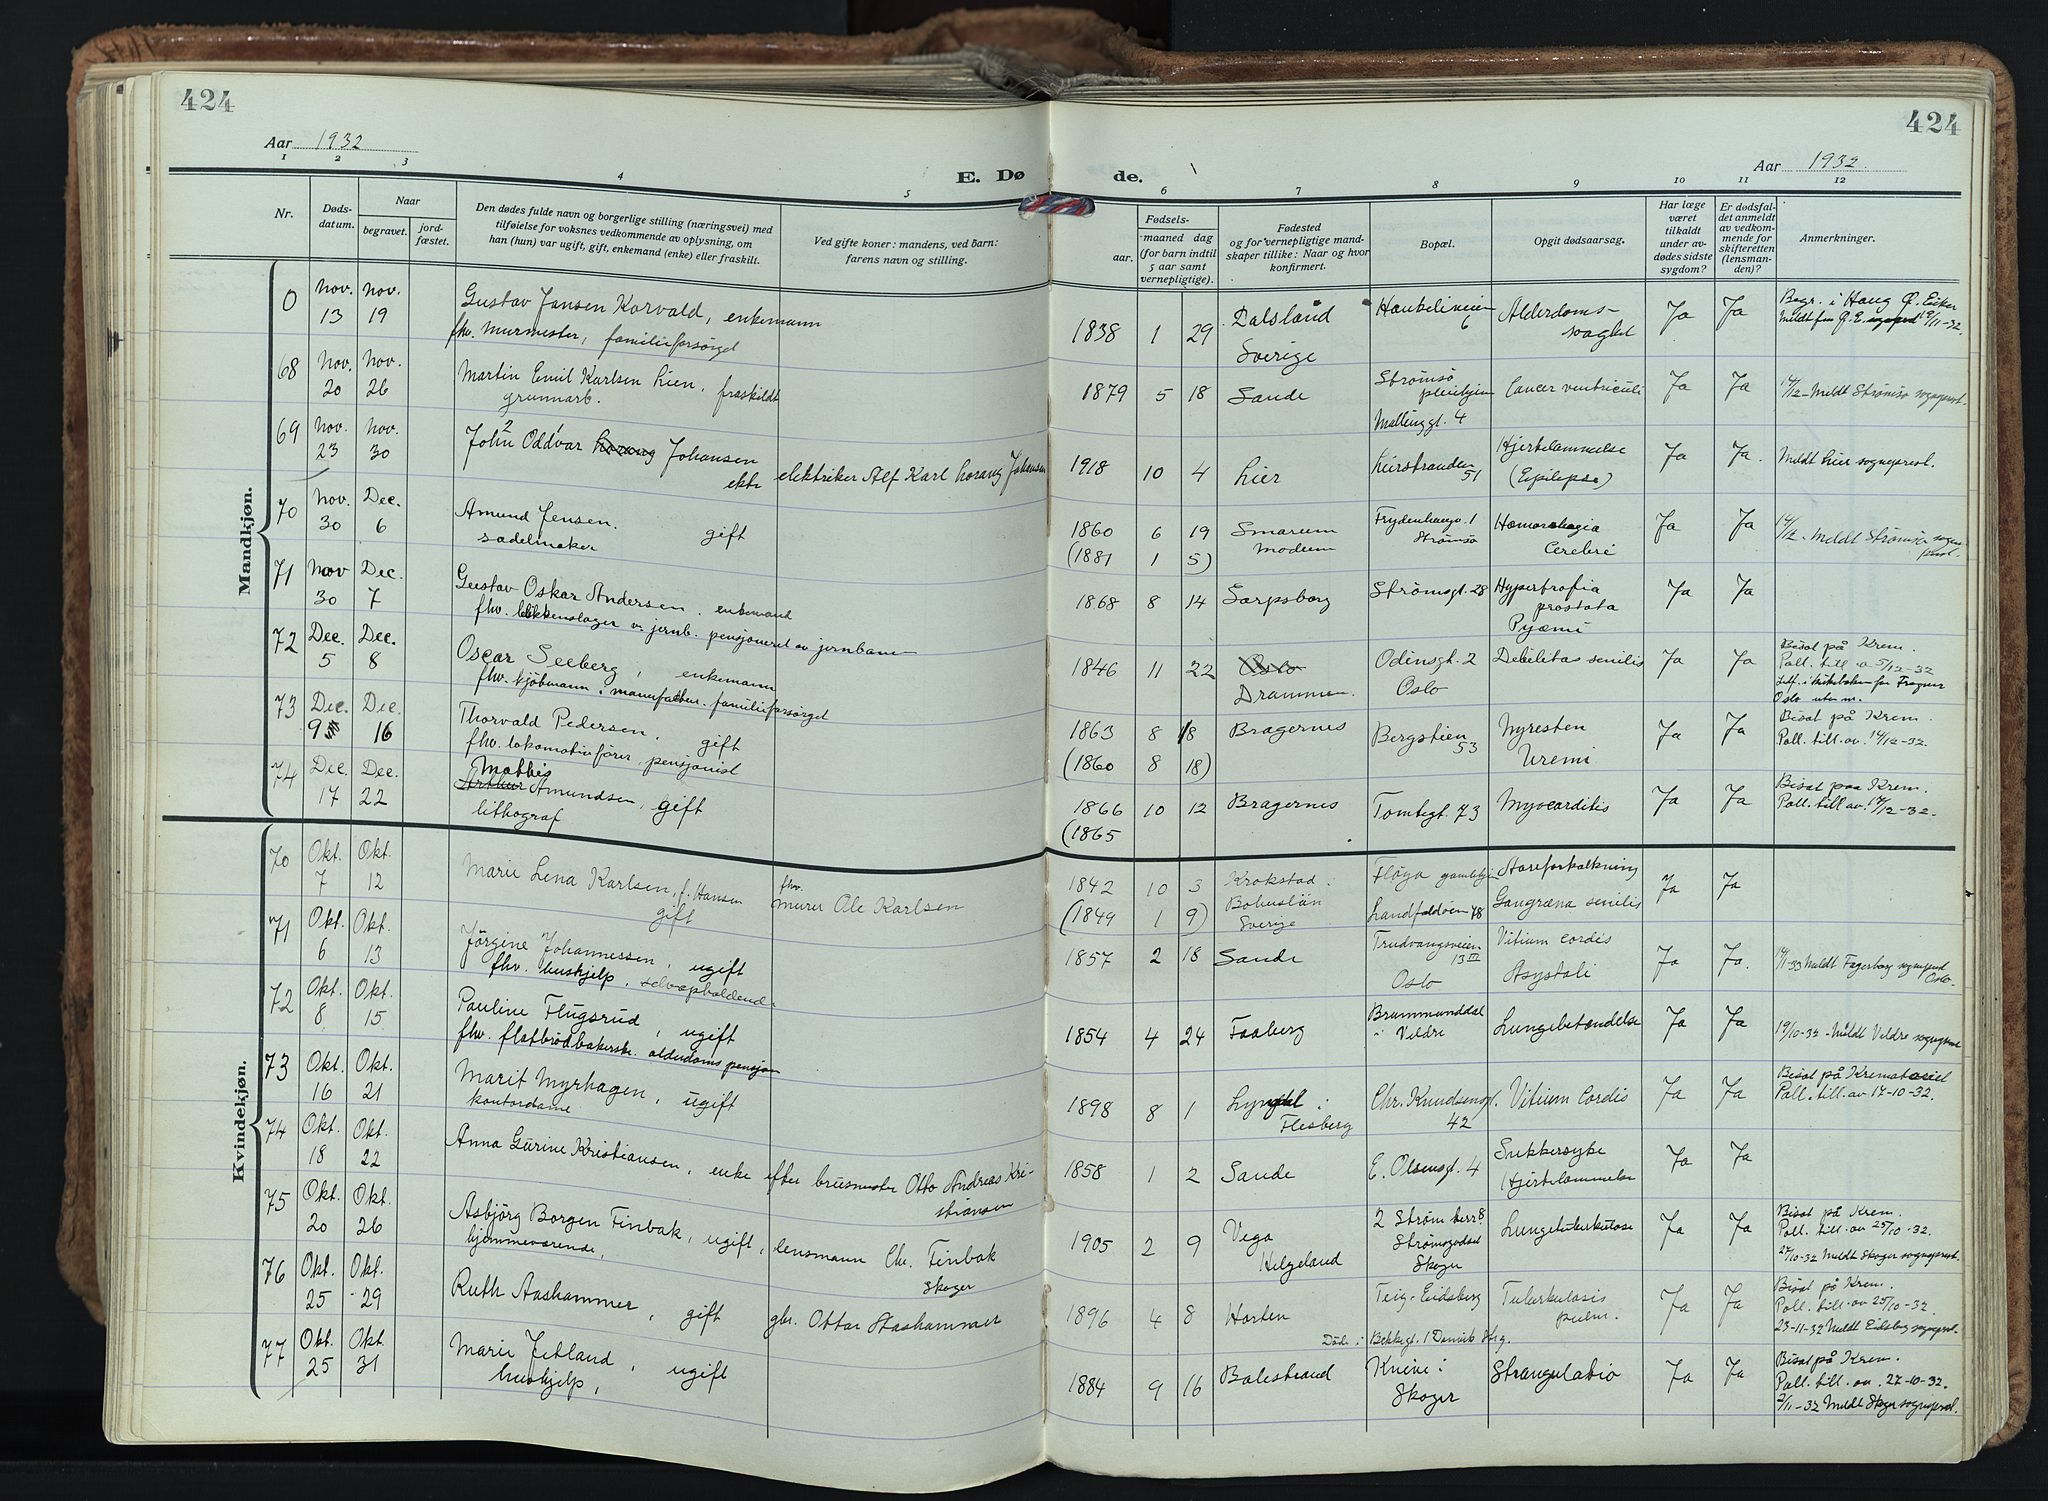 424
Aar 1932
1 2 3 4 5
E. Dø
Nr.
Døds-
datum.
Naar
begravet.
jord-
fæstet.
Den dødes fulde navn og borgerlige stilling (næringsvei) med
tilføielse for voksnes vedkommende av oplysning, om
han (hun) var ugift, gift, enkemand (enke) eller fraskilt.
Ved gifte koner: mandens, ved barn:
farens navn og stilling.
Mandkjøn.
0 Nov. 13 Nov. 19 Gustav Jansen Korvald, enkemann
fhv. Murmester, familieforsørget
68 Nov. 20 Nov. 26 Martin Emil Karlsen Lien, fraskildt
grunnarb.
69 Nov. 23 Nov. 30 John Oddvar Johansen
elektriker Alf Karl Lorang Johansen
70 Nov. 30 Dec. 6 Amund Jensen. gift
sadelmaker
71 Nov 30 Dec. 7 Gustav Oskar Andersen. enkemand
fhv. blikkenslager v. jernb. pensjoneret av jernbanen
72 Dec. 5 Dec. 8 Oscar Seeberg, enkemann
fhv. kjøbmann i familieforsørget
73 Dec. 9 Dec. 16 Thorvald Pedersen, gift
fhv. lokomotivfører, pensjonist
74 Dec. 17 Dec. 22 Mathis
Arthur Amundsen, gift
lithograf
Kvindekjøn.
70 Okt. 7 Okt. 12 Marie Lena Karlsen, f. Hansen
gift
fhv.
murer Ole Karlsen
71 Okt. 6 Okt. 13 Jörgine Johannessen, ugift
fhv. hushjelp, selvopholdende
72 Okt. 8 Okt. 15 Pauline Flugsrud, ugift
fhv. flatbrödbakerske. alderdoms pensjon
73 Okt. 16 Okt. 21 Marit Myrhagen, ugift
kontordame
74 Okt. 18 Okt. 22 Anna Gurine Kristiansen, enke efter Otto Andreas Kri-
stiansen
75 Okt. 20 Okt. 26 Asbjörg Borgen Finbak, ugift, lensmann Chr. Finbak
hjemmeværende, Skoger
76 Okt. 25 Okt. 29 Ruth Aashammer, gift gbr. Ottar Aashammer
77 Okt. 25 Okt. 31 Marie Jetland, ugift
hushjelp,
424
Aar 1932
de.
6 7 8 9 10 11 12
Fødsels-
aar. maaned dag
(for barn indtil
5 aar samt
vernepligtige).
Fødested
og for vernepligtige mand-
skaper tillike: Naar og hvor
konfirmert.
Bopæl.
Opgit dødsaarsag.
Har læge
været
tilkaldt
under av-
dødes sidste
sygdom?
Er dødsfal-
det anmeldt
av vedkom-
mende for
skifteretten
(lensman-
den)?
Anmerkninger.
1838 1 29 Dalsland
Sverige Haukeliveien
6 Alderdoms-
svaghet Ja Ja Begr. i Haug Ø. Eiker
1879 5 18 Sande Strømsø
pleiehjem
Møllenggt. 4 Cancer ventriculi Ja Ja 14/12 - Meldt Strømsø sogneprest.
1918 10 4 Lier Lierstranden
51 Hjertelammelse
(Epilepse) Ja Ja. Meldt Lier sogneprest.
1860 6 19
(1881 1 5) Smarum
Modum Frydenhaugv. 1
Strømsø Hæmorrhagia
Cerebri Ja Ja 14/12 - Meldt Strømsø sogne-
prest.
1868 8 14 Sarpsborg Strømsgt. 28 Hypertrofia
prostata
Pyæmi Ja Ja
1846 11 22 Oslo
Drammen. Odinsgt. 2
Oslo Debilitas senilis Ja Ja Bisat på Krem.
Poll. till. av 5/12-32
Oslo uten nr.
1863 8 18
(1860 8 18) Bragernes Bergstien
53 Nyresten
Uremi Ja Ja Bisat på Krem.
Poll. till. av. 14/12-32.
1866 10 12
(1865 Bragernes Tomtegt. 73 Myocarditis Ja Ja Bisat paa Krem.
Poll. till av. 19/12-32.
1842 10 3
(1849 1 9) Krokstad
Bohuslän
Sverige Fløya gamlehjem
Landfaldøen 78 Aareforkalkning
Gangræna senilis Ja Ja
1857 2 18 Sande Trudvangsveien
13 III
Oslo Vitium cordis
Asystoli Ja Ja. Meldt Fagerborg sogneprest
Oslo.
1854 4 24 Faaberg Brummunddal
i Veldre Lungebetændelse Ja Ja 19/10-32 - Meldt Veldre sogneprest
1898 8 1 Lyngdal i
Flesberg Chr. Knudsensgt.
42 Vitium Cordis Ja Ja Bisat på Krematoriet
Poll. till. av 17-10-32.
1858 1 2 Sande E. Olsensgt. 4 Sukkersyke
Hjertelammelse Ja Ja
1905 2 9 Vega
Helgeland Strømsgodset
Skoger Lungetuberkulose Ja Ja Bisat på Krem.
Poll. till. av 25/10-32.
27/10-32 Meldt Skoger sogneprest.
1896 4 8 Horten Teig-Eidsberg Tuberkulosis
pulm. Ja Ja Bisat på Krem.
Poll. till. av 25/10-32.
23-11-32 Meldt Eidsberg sogneprest.
Død i Bekkegt. 1
1884 9 16 Balestrand Knive i
Skoger Strangulatio Ja Ja Bisat på Krem.
Poll. till. av. 27-10-32.
2/11-32 Meldt Skoger sogneprest.